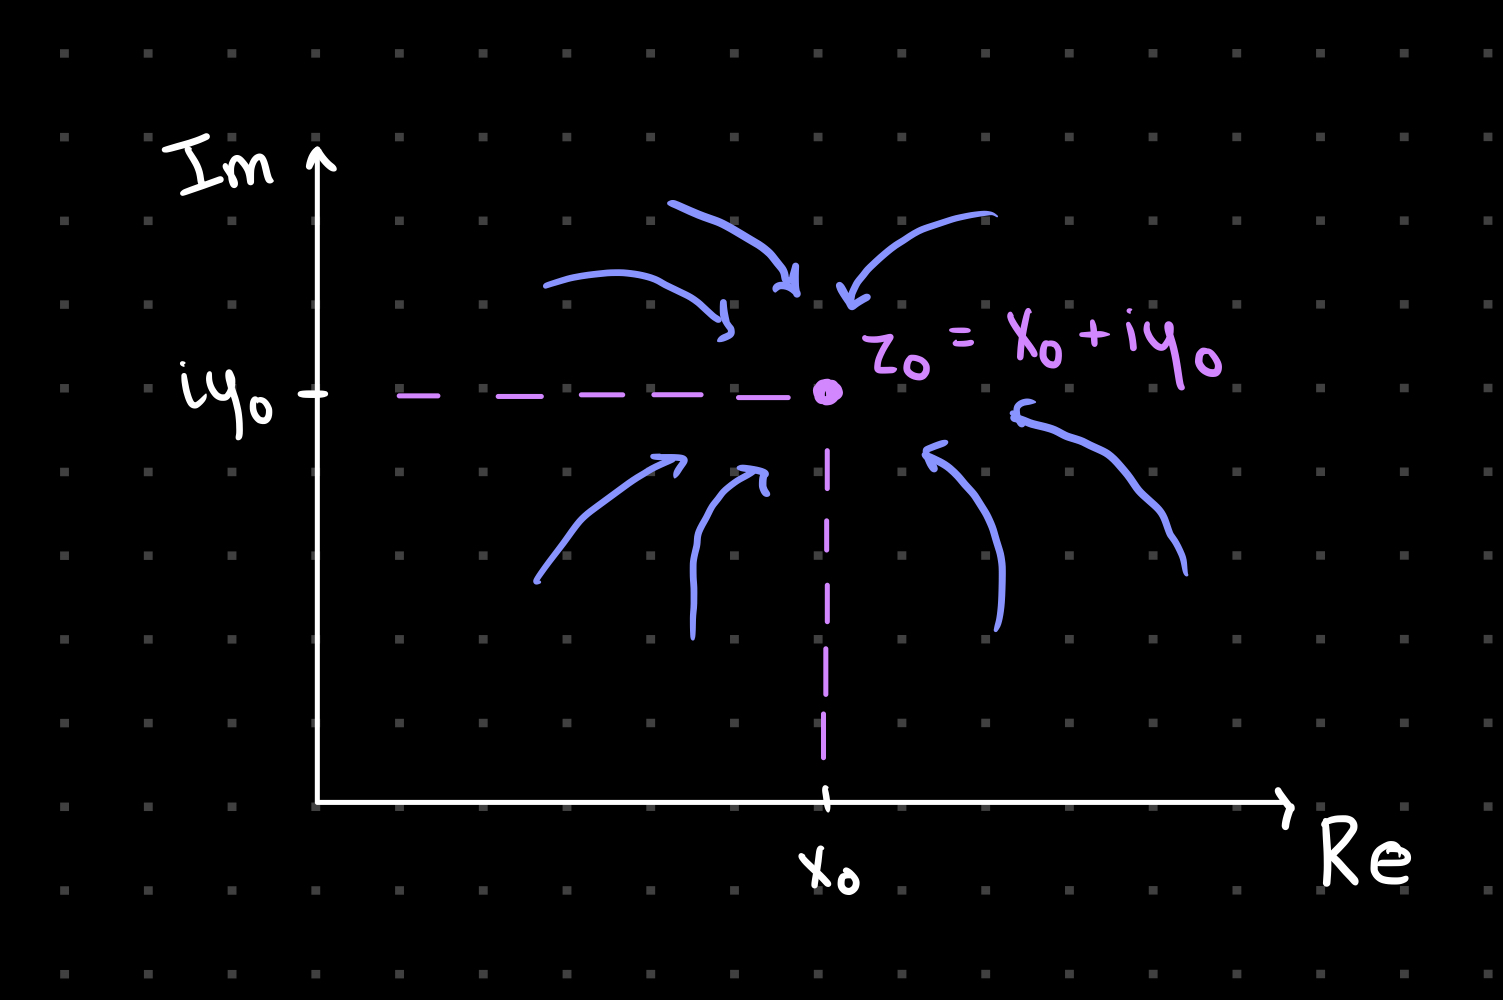 Im
z₀ = x₀ + iy₀
iy₀
x₀
Re